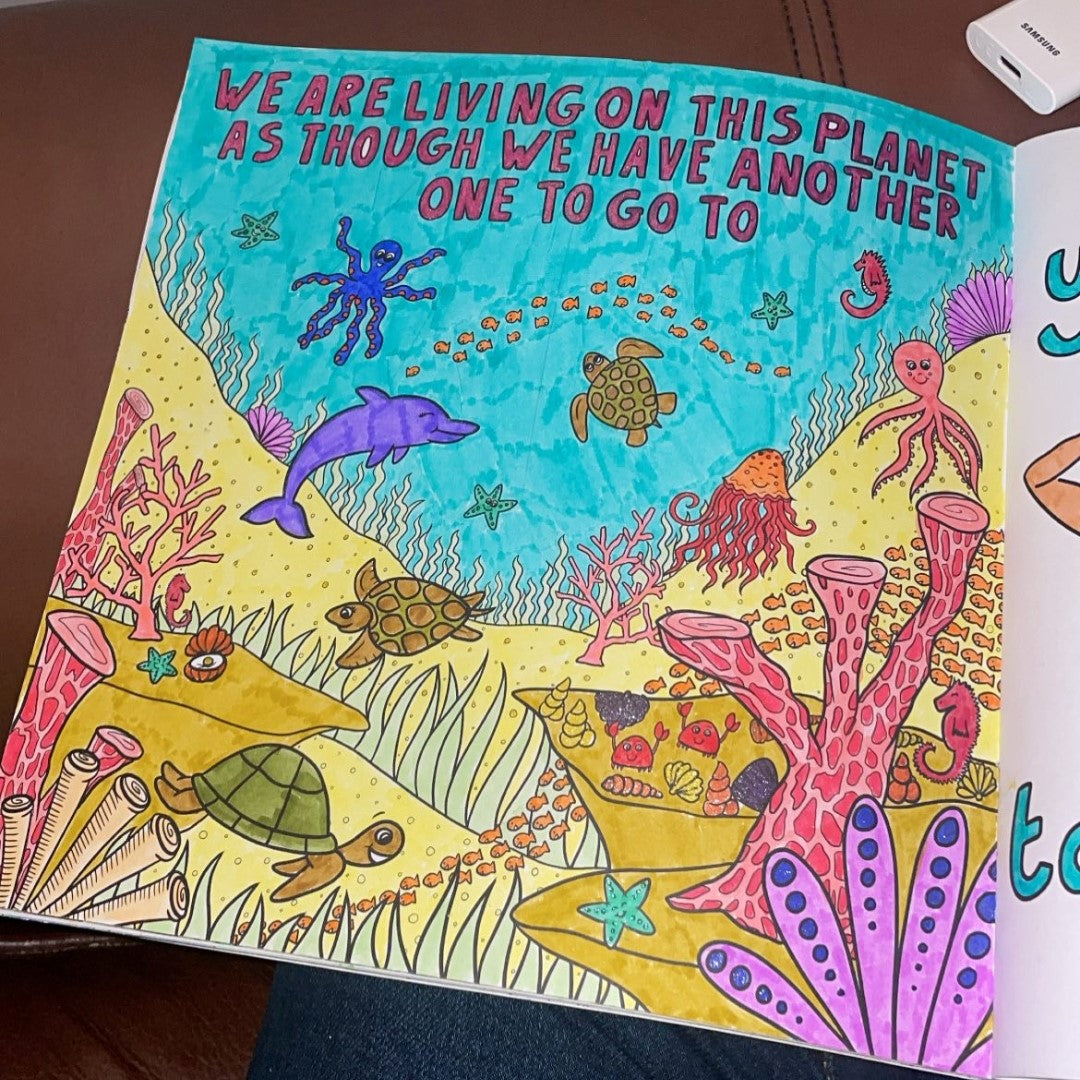 WE ARE LIVING ON THIS PLANET
AS THOUGH WE HAVE ANOTHER
ONE TO GO TO
SAMSUNG